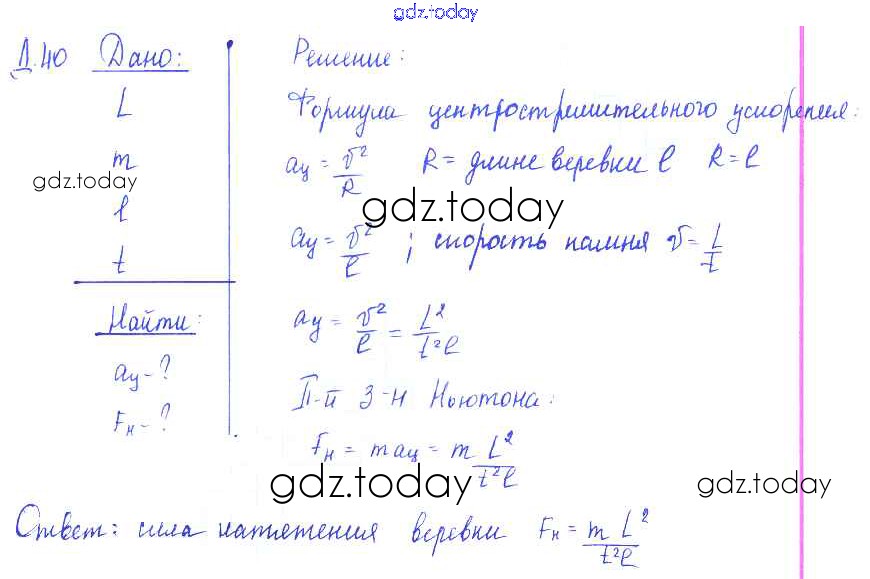 gdz.today
Д.40 Дано:
L
m
gdz.today
l
t
Найти:
aц - ?
Fн - ?
Решение:
Формула центростремительного ускорения:
aц = v²/R R = длине веревки l R = l
gdz.today
aц = v²/l ; скорость камня v = L/t
aц = v²/l = L²/t²l
II-й З-н Ньютона:
Fн = maц = m L²/t²l
gdz.today gdz.today
Ответ: сила натяжения веревки Fн = m L²/t²l